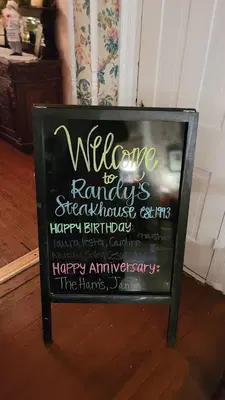 Welcome
to
Randy's
Steakhouse est. 1993
Happy Birthday:
Laura, Lester, Caroline
Happy Anniversary:
The Ham's,